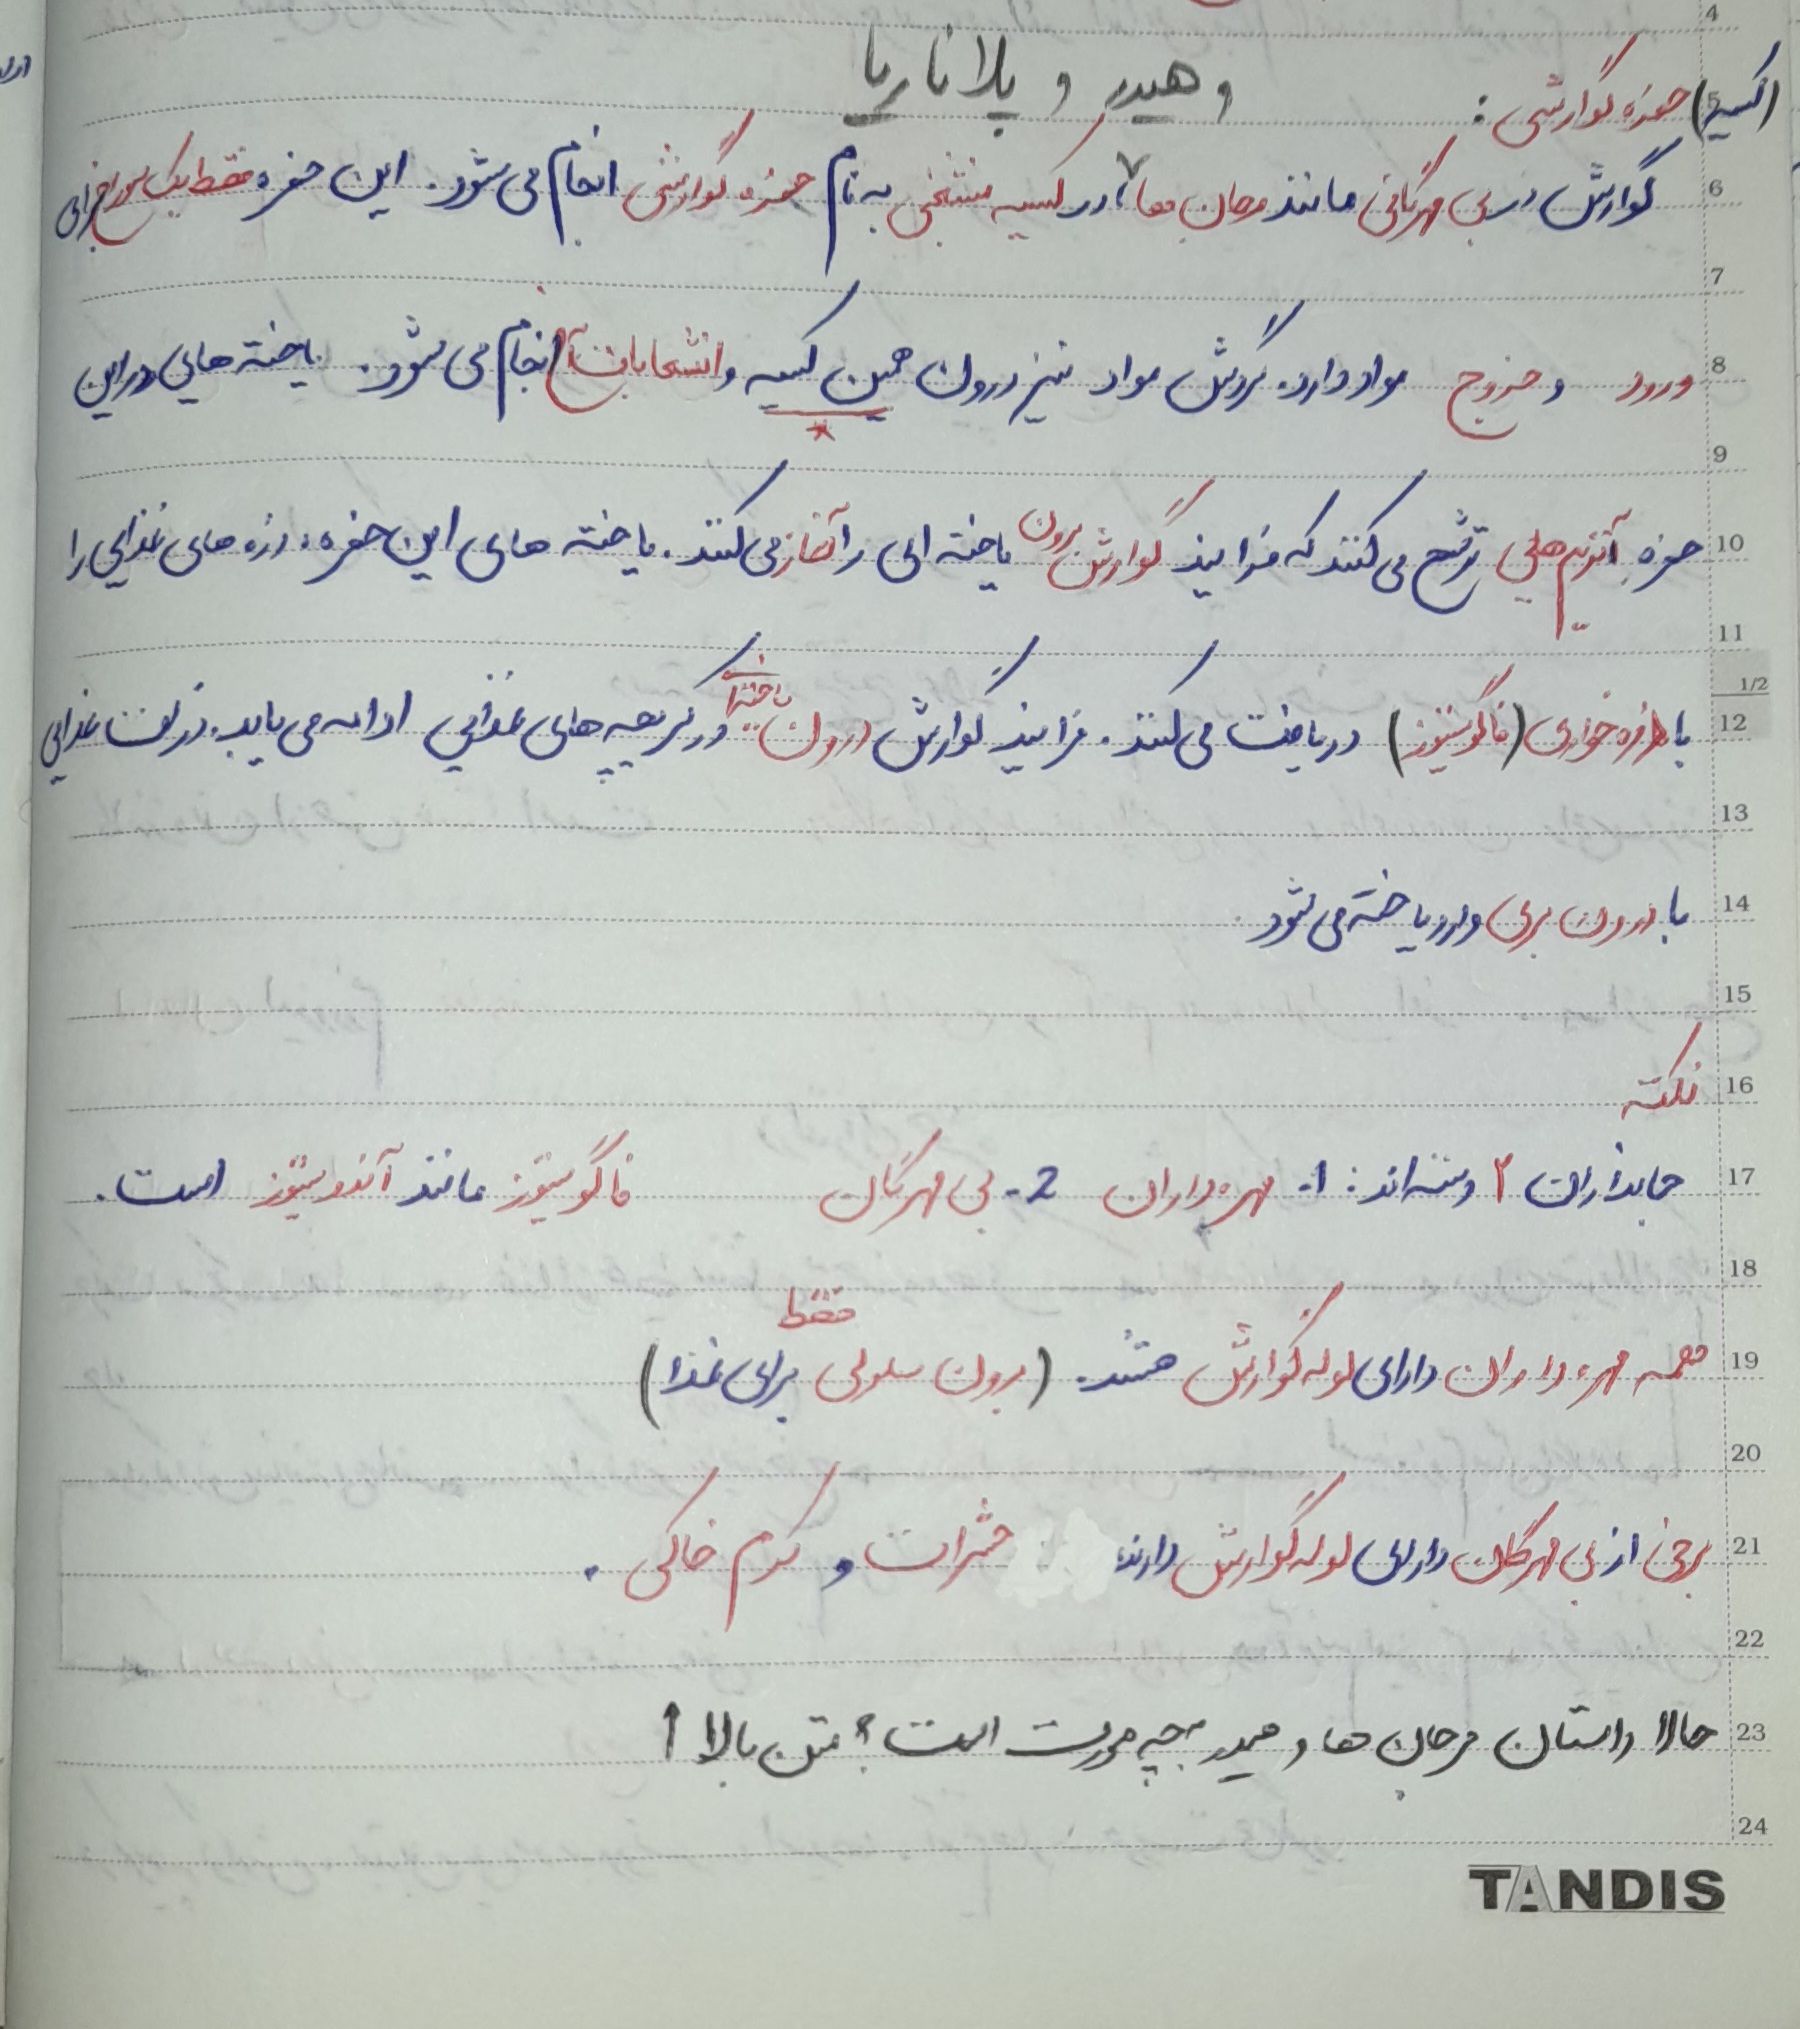 و هیدر و پلاناریا
(کیسه) حفره گوارشی :
گوارش در بی مهرگانی مانند مرجان ها ، در کیسه منشخی به نام حفره گوارشی انجام می شود. این حفره فقط یک سوراخ برای
ورود و خروج مواد دارد. گردش مواد نیز درون همین کیسه و انشعابات آن انجام می شود. یاخته هایی در این
حفره آنزیم هایی ترشح می کنند که فرایند گوارش برون یاخته ای را آغاز می کنند. یاخته های این حفره، ذره های غذایی را
با ذره خواری (فاگوسیتوز) دریافت می کنند. فرایند گوارش درون یاخته ای در کریچه های غذایی ادامه می یابد. ذرات غذایی
با درون بری وارد یاخته می شود.
نکته
جانداران ۲ دسته اند: 1- مهره داران 2- بی مهرگان فاگوسیتوز مانند آندوسیتوز است.
همه مهره داران دارای لوله گوارش هستند. (برون سلولی فقط برای غذا)
برخی از بی مهرگان دارای لوله گوارش دارند حشرات و کرم خاکی .
حالا داستان مرجان ها و هیدر به چه صورت است؟ متن بالا ↑
4
5
6
7
8
9
10
11
1/2
12
13
14
15
16
17
18
19
20
21
22
23
24
TANDIS